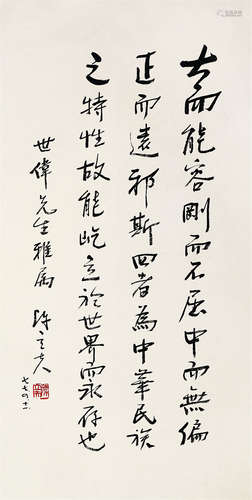 大而能容剛而不屈中而無偏
正而遠邪斯四者為中華民族
之特性故能屹立於世界而永存也
世偉先生雅屬 陳立夫